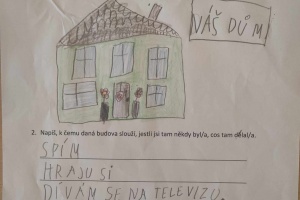 NÁŠ DŮM
2. Napiš, k čemu daná budova slouží, jestli jsi tam někdy byl/a, cos tam dělal/a.
SPÍM
HRAJU SI
DÍVÁM SE NA TELEVIZU.